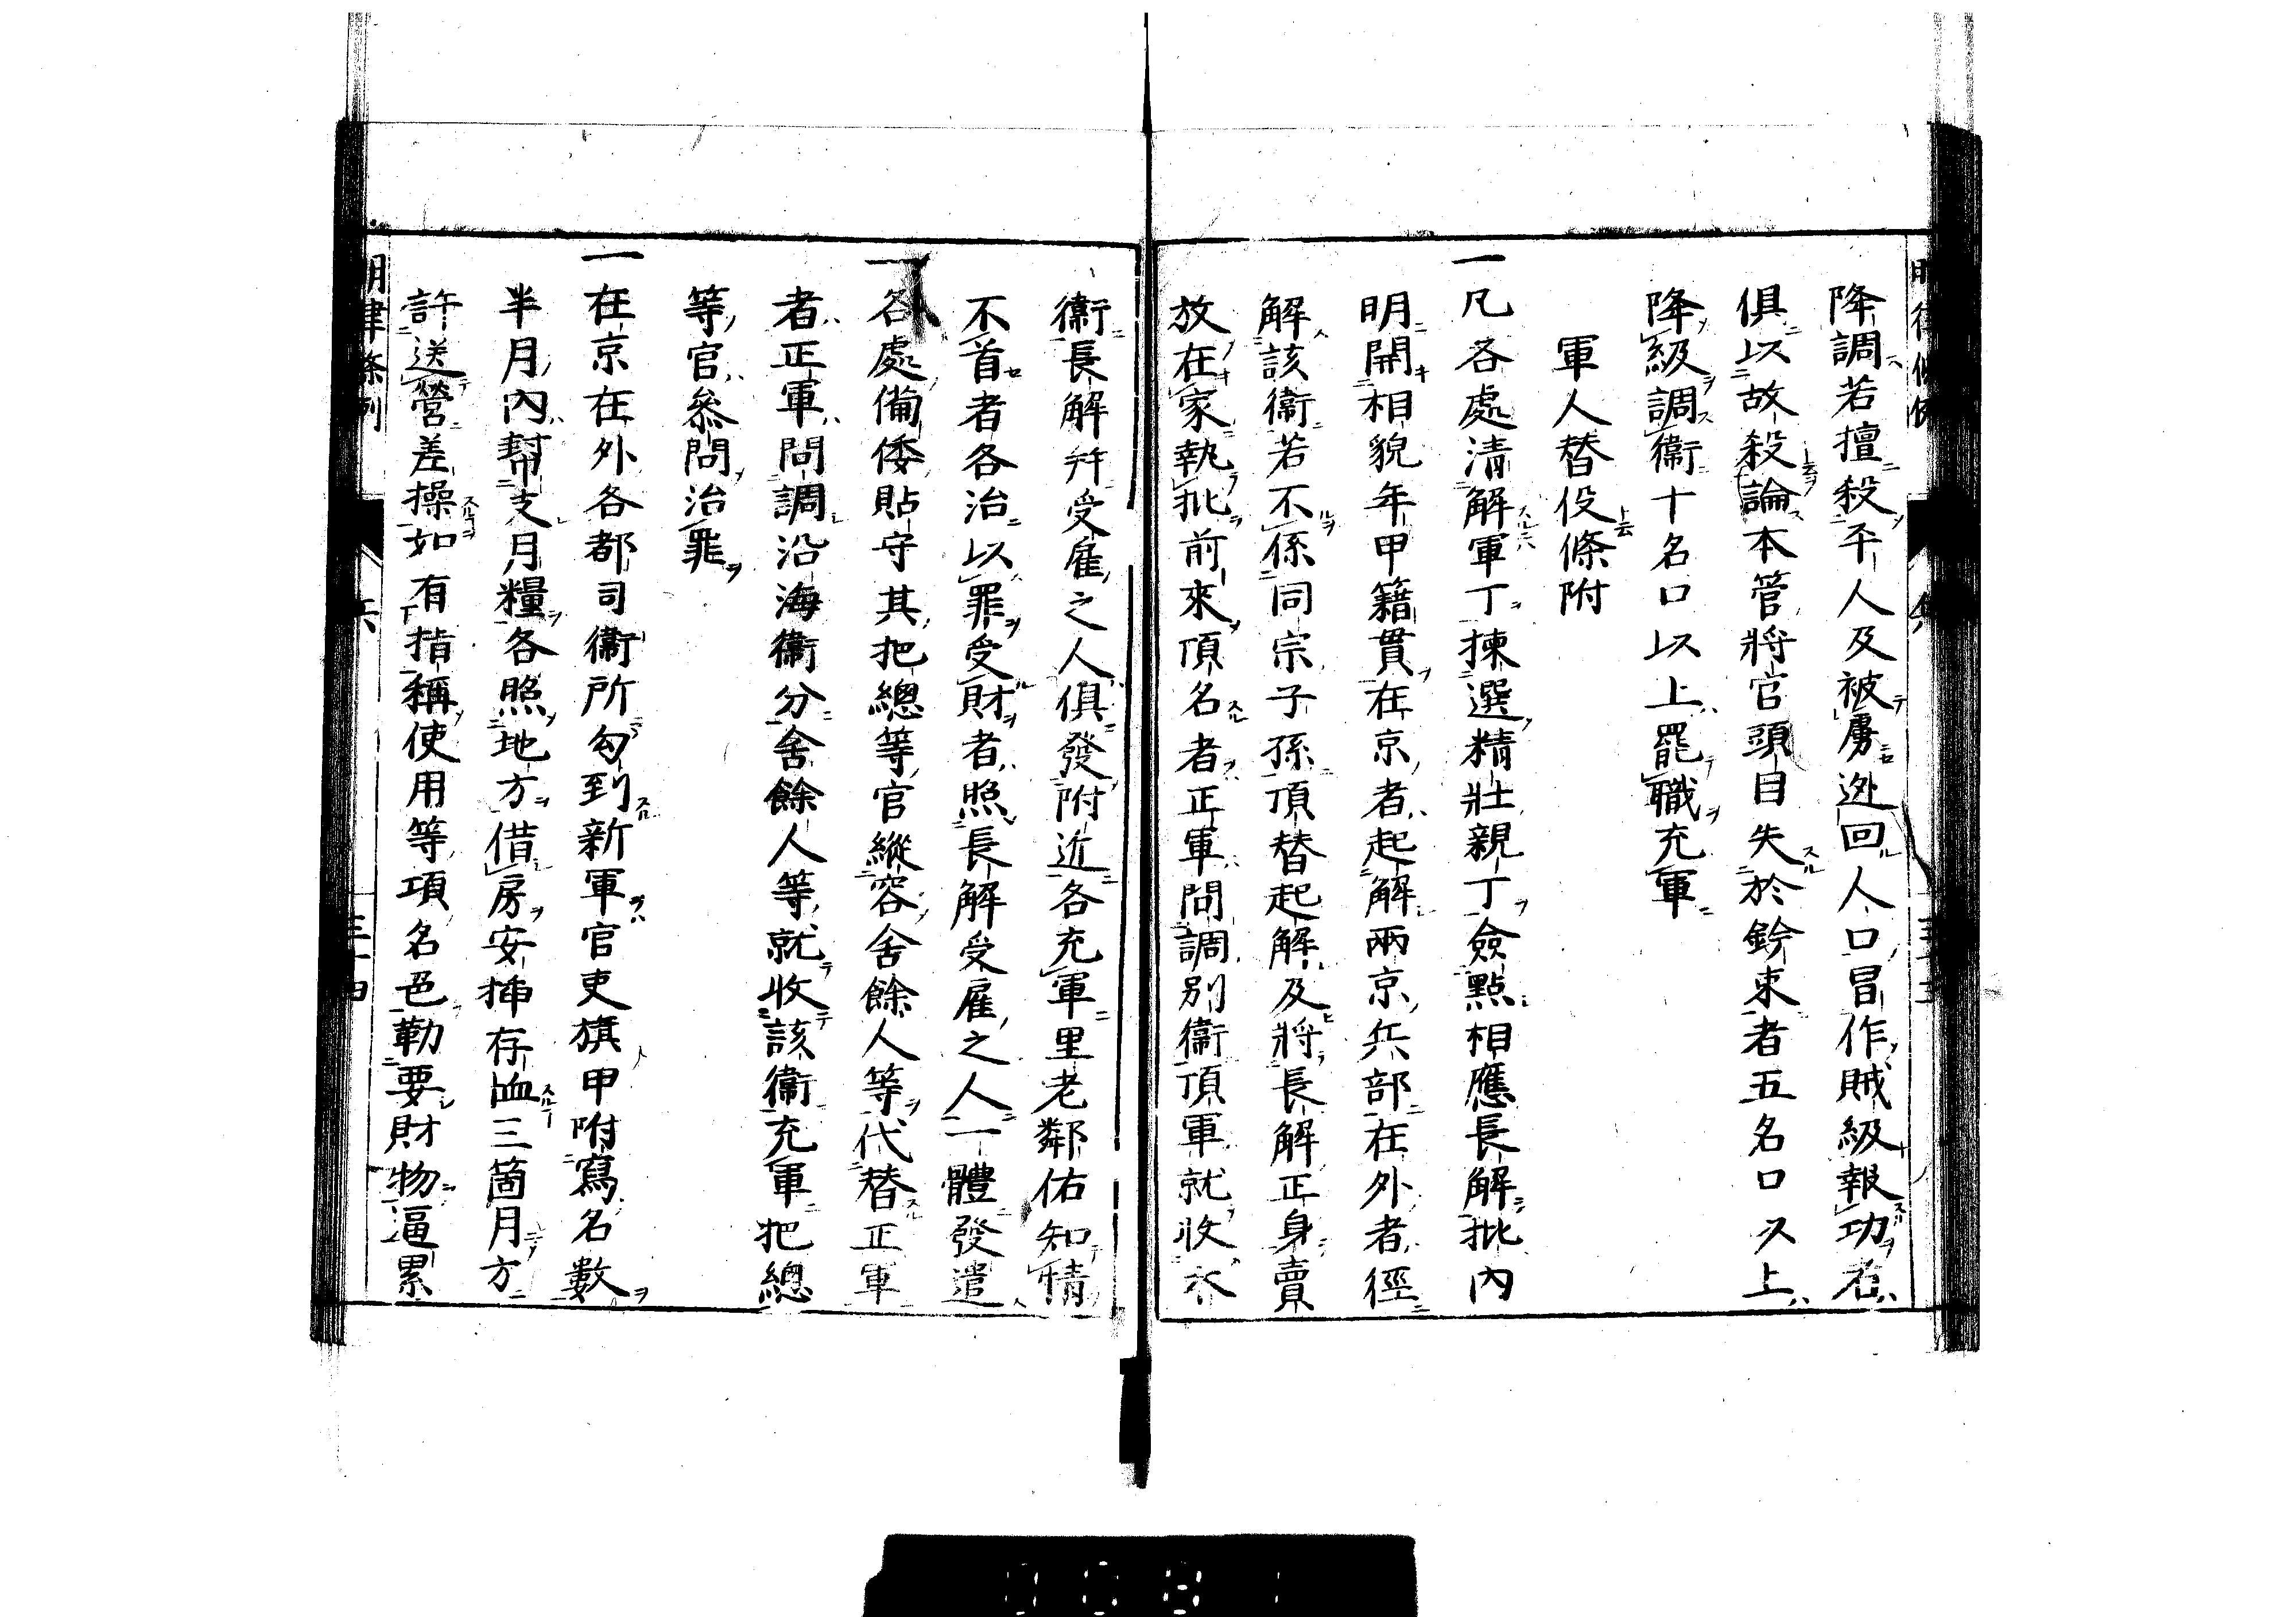 降調若擅殺平人及被虜逃回人口冒作賊級報功者
俱以故殺論本管將官頭目失於鈐束者五名口以上
降級調衞十名口以上罷職充軍
軍人替役條附
一凡各處清解軍丁揀選精壯親丁僉點相應長解批內
明開相貌年甲籍貫在京者起解兩京兵部在外者徑
解該衞若不係同宗子孫頂替起解及將長解正身賣
放在家執批前來頂名者正軍問調別衞頂軍就收本
衞長解幷受雇之人俱發附近各充軍里老鄰佑知情
不首者各治以罪受財者照長解受雇之人一體發遣
一各處備倭貼守其把總等官縱容舍餘人等代替正軍
者正軍問調沿海衞分舍餘人等就收該衞充軍把總
等官叅問治罪
一在京在外各都司衞所勾到新軍官吏旗甲附寫名數
半月內幇支月糧各照地方借房安揷存恤三箇月方
許送營差操如有指稱使用等項名色勒要財物逼累
明律條例
兵
三十四